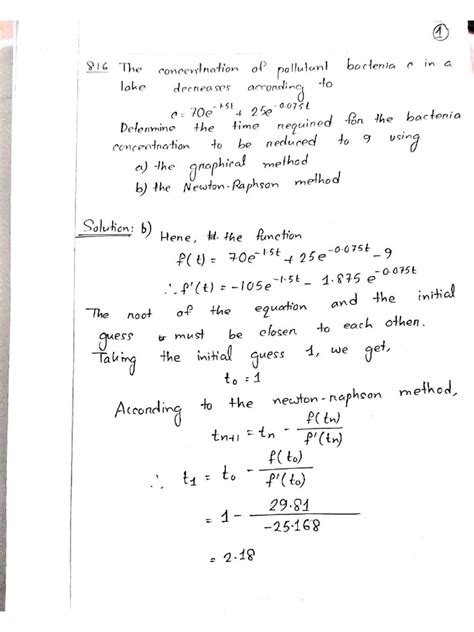 ①
8.16 The concentration of pollutant bacteria c in a
lake decreases according to
c = 70e^-1.5t + 25e^-0.075t
Determine the time required for the bacteria
concentration to be reduced to 9 using
a) the graphical method
b) the Newton-Raphson method
Solution: b) Here, the function
f(t) = 70e^-1.5t + 25e^-0.075t - 9
∴ f'(t) = -105e^-1.5t - 1.875 e^-0.075t
The root of the equation and the initial
guess must be closen to each other.
Taking the initial guess 1, we get,
t₀ = 1
According to the newton-raphson method,
tn+1 = tn - f(tn)/f'(tn)
∴ t₁ = t₀ - f(t₀)/f'(t₀)
= 1 - 29.81/-25.168
= 2.18